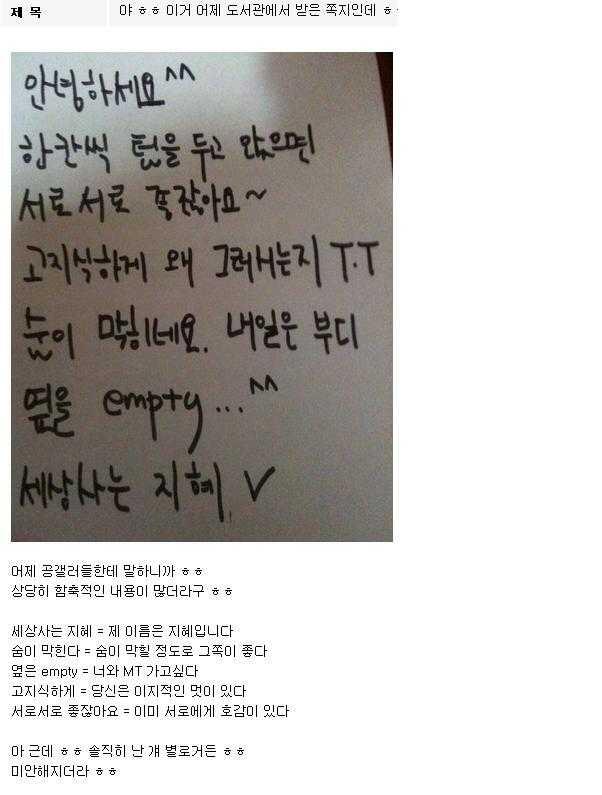 제 목 야 ㅎㅎ 이거 어제 도서관에서 받은 쪽지인데 ㅎ
안녕하세요^^
한칸씩 텀을 두고 앉으면
서로서로 좋잖아요~
고지식하게 왜 그러시는지 T.T
숨이 막히네요. 내일은 부디
옆을 empty...^^
세상사는 지혜 V
어제 공갤러들한테 말하니까 ㅎㅎ
상당히 함축적인 내용이 많더라구 ㅎㅎ
세상사는 지혜 = 제 이름은 지혜입니다
숨이 막힌다 = 숨이 막힐 정도로 그쪽이 좋다
옆은 empty = 너와 MT 가고싶다
고지식하게 = 당신은 이지적인 멋이 있다
서로서로 좋잖아요 = 이미 서로에게 호감이 있다
아 근데 ㅎㅎ 솔직히 난 걔 별로거든 ㅎㅎ
미안해지더라 ㅎㅎ